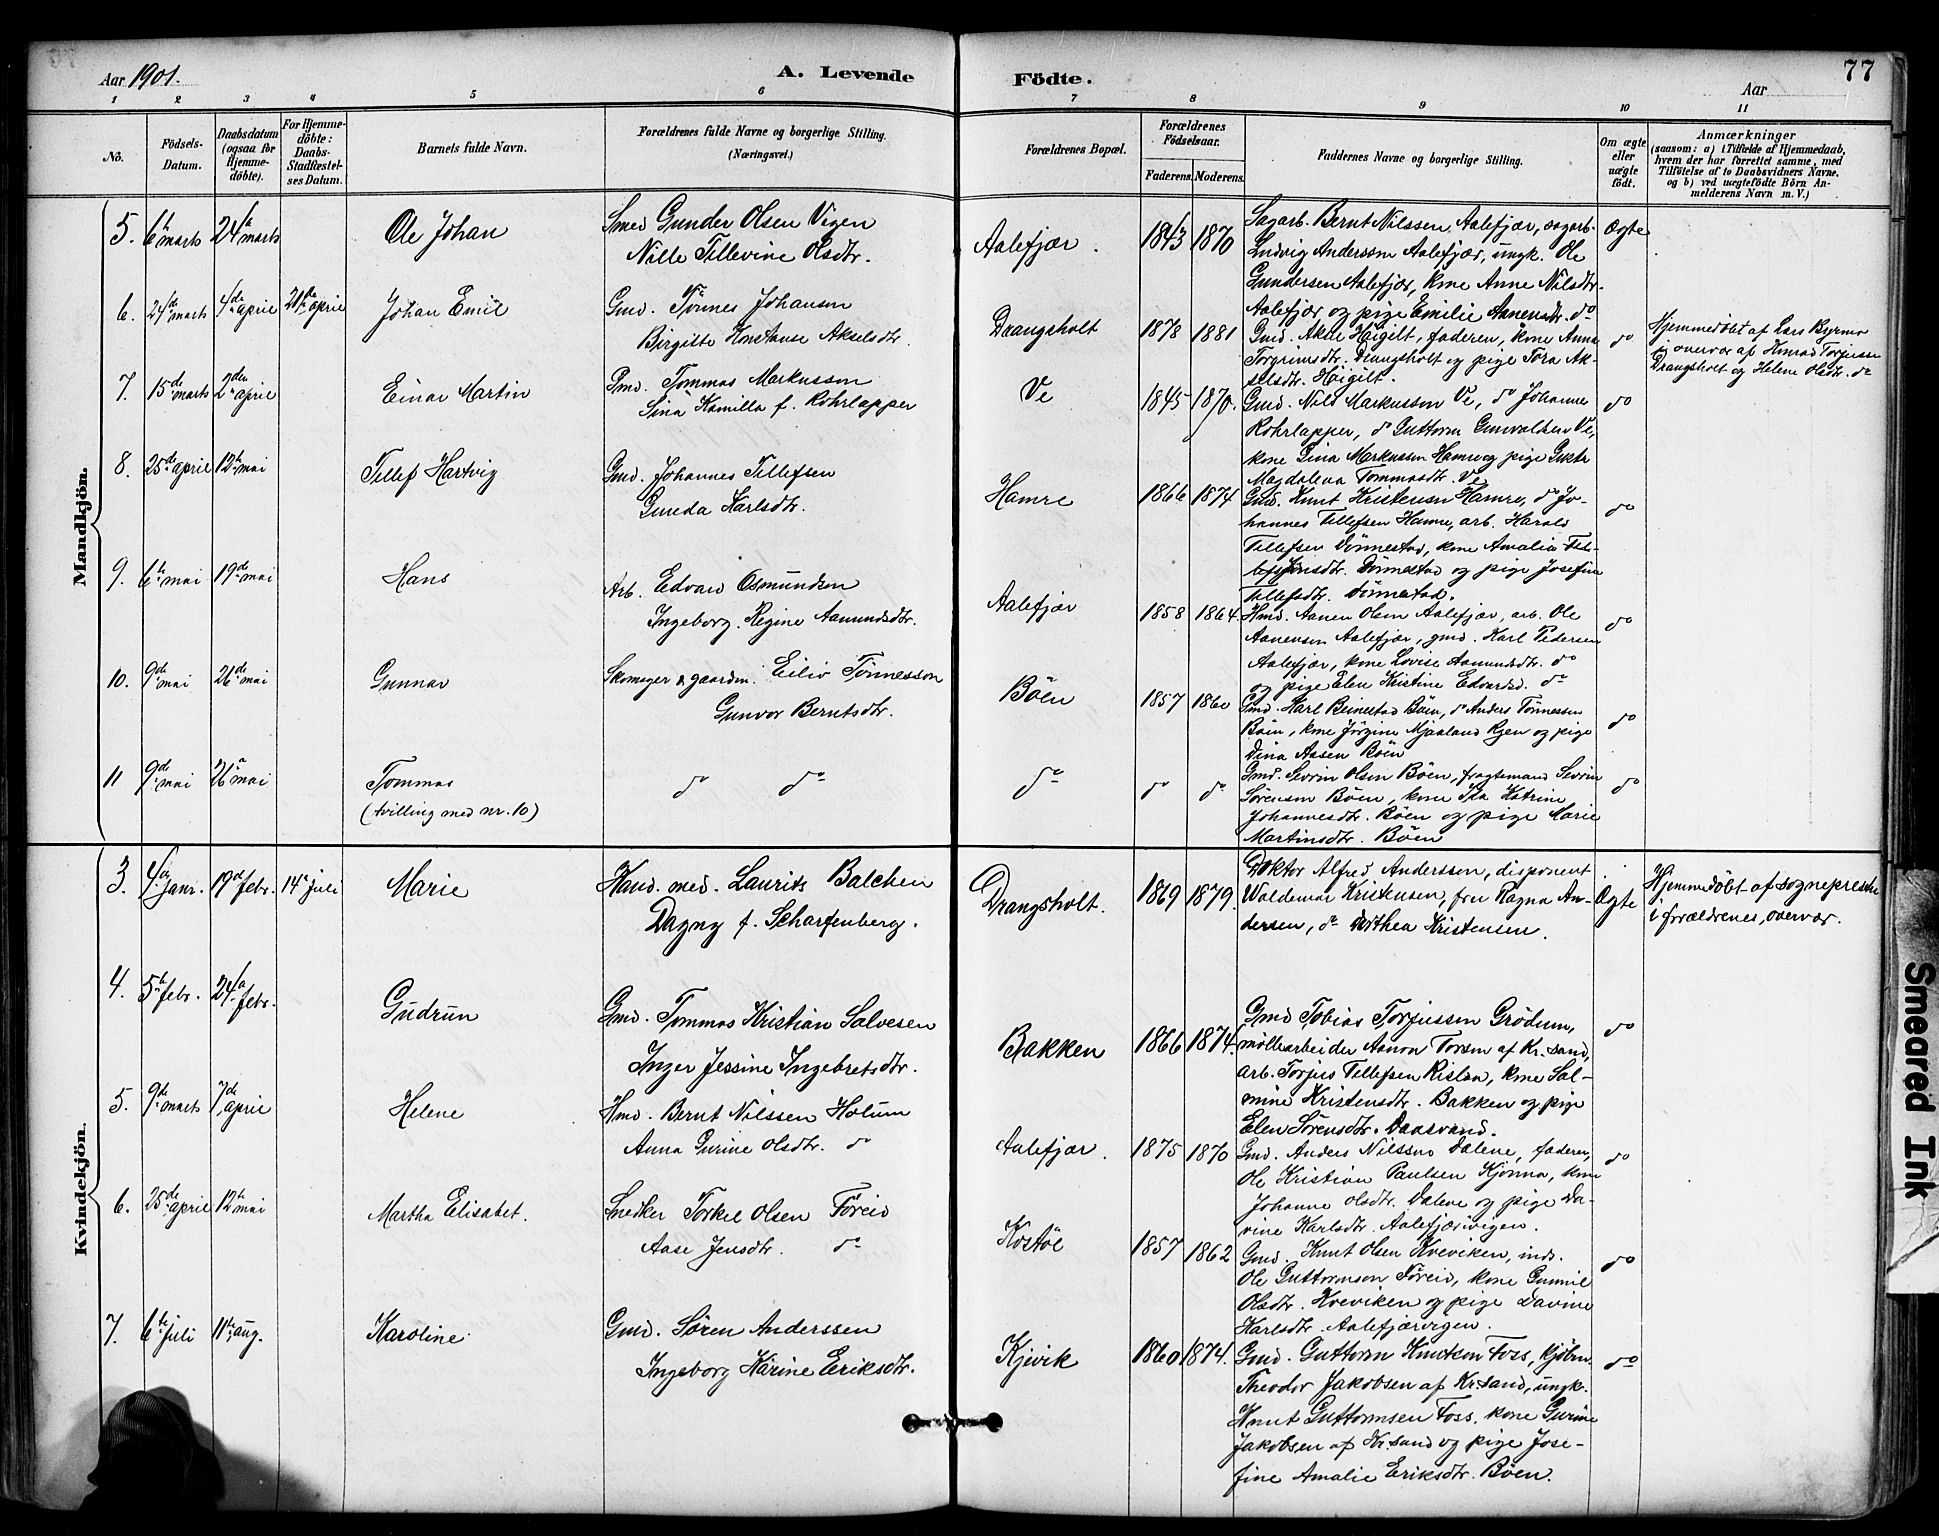 Aar 1901.
A. Levende
Födte.
77
Aar
1 2 3 4 5 6 7 8 9 10 11
No.
Födsels-
Datum.
Daabsdatum
(ogsaa for
Hjemme-
döbte).
For Hjemme-
döbte:
Daabs-
Stadfæstel-
ses Datum.
Barnets fulde Navn.
Forældrenes fulde Navne og borgerlige Stilling.
(Næringsvei.)
Forældrenes Bopæl.
Forældrenes
Födselsaar.
Faderens. Moderens.
Faddernes Navne og borgerlige Stilling.
Om ægte
eller
uægte
født.
Anmærkninger
(saasom: a) i Tilfælde af Hjemmedaab,
hvem der har forrettet samme, med
Tilföielse af to Daabsvidners Navne.
og b) ved uægtefödte Börn An-
melderens Navn m. V.)
Mandkjön.
5. 6te marts 24de marts
Ole Johan
Smed Gunder Olsen Vigen
Nille Tellevine Olsdtr.
Aalefjær.
1843 1870
Sagarb. Bernt Nilssen, Aalefjær, sagarb.
Ludvig Anderssen Aalefjær, ungk. Ole
Gundersen Aalefjær, kone Anne Nilsdtr.
Aalefjær og pige Emilie Aanensdtr. do
Ægte
6. 24de marts 4de april 21de april
Johan Emil
Gmd. Tønnes Johansen
Birgitte Konstanse Akselsdtr.
Drangsholt
1878 1881
Gmd. Aksel Høigilt, faderen, kone Anna
Torgrimsdtr. Drangsholt og pige Tora Ak-
selsdtr. Høigilt.
do
Hjemmedöbt af Lars
i overvær af Konrad Torjussen
Drangsholt og Helene Olsdtr. do
7. 15de marts 2den april
Einar Martin
Gmd. Tommas Markussen
Sina Kamilla f. Rohrlapper
Ve
1845 1870.
Gmd. Nils Markusson Ve, do Johanne
Rohrlapper, do Guttorm Gunvaldsen Ve,
kone Gina Markussen Hamre og pige
Magdalena Tommasdtr. Ve
do
8. 25de april 12te mai
Tellef Hartvig
Gmd. Johannes Tellefsen
Gunda Karlsdtr.
Hamre
1866 1874
Gmd. Knut Kristensen Hamre, do Jo-
hannes Tellefsen Hamre, arb. Harald
Tellefsen Dönnestad, kone Amalia
Dönnestad og pige Josefine
Tellefsdtr. Dönnestad.
do
9. 6te mai 19de mai
Hans
Arb. Edvard Osmundsen
Ingeborg Regine Aamundsdtr.
Aalefjær
1858 1864.
Hmd. Aanen Olsen Aalefjær, arb. Ole
Aanensen Aalefjær, gmd. Karl Pedersen
Aalefjær, kone Lovise Aamundsdtr. do
og pige Elen Kristine Edvardsd. do
do
10. 9de mai 26de mai
Gunnar
Skomager & gaardm. Eiliv Tönnesson
Gunvor Berntsdtr.
Böen
1857 1860
Gmd. Karl Beinestad Böen, do Anders Tönnessen
Böen, kone Jörgine Mjaaland Ryen og pige
Dina Aasen Böen
do
11 9de mai 26de mai
Tommas
(tvilling med nr. 10)
do do
do
do do
Gmd. Sevrin Olsen Böen, fragtemand Sevrin
Sörensen Böen, kone Ida Katrine
Johannesdtr. Böen og pige Marie
Martinsdtr. Böen
do
Kvindekjön.
3. 4de janr. 19de febr. 14de juli
Marie
Kand. med. Laurits Balchen
Dagny f. Scharfenberg.
Drangsholt.
1869 1879.
Doktor Alfred Anderssen, disponent
Waldemar Kristensen, fru Ragna An-
dersen, do Dorthea Kristensen.
Ægte
Hjemmedöbt af sogneprest
i forældrenes overvær.
4. 5te febr. 24de febr.
Gudrun
Gmd. Tommas Kristian Salvesen
Inger Jessine Ingebretsdtr.
Bakken
1866 1874.
Gmd Tobias Torjussen Grödum,
möllearbeider Aanon Torsen af Kr.sand,
arb. Torjus Tellefsen Rislaa, kone Sal-
mine Kristensdtr. Bakken og pige
Elen Sörensdtr. Daasvand.
do
5. 9de marts 7de april
Helene
Hmd. Bernt Nilssen Holum
Anna Gurine Olsdtr. do
Aalefjær.
1875 1870
Gmd. Anders Nilssen Dalene, faderen,
Ole Kristian Paulsen Kjönna, kone
Johanne Olsdtr. Dalene og pige Da-
vine Karlsdtr. Aalefjærvigen.
do
6. 25de april 12te mai
Martha Elisabet.
Snedker Torkel Olsen Töreid
Aase Jensdtr. do
Kostöl
1857 1862
Gmd. Knut Olsen Kveviken, inds.
Ole Guttormson Töreid, kone Gunnil
Olsdtr. Kveviken og pige Davine
Karlsdtr. Aalefjærvigen.
do
7. 6te juli 11te aug.
Karoline
Gmd. Sören Anderssen
Ingeborg Karine Eriksdtr.
Kjevik
1860 1874.
Gmd. Guttorm Knutson Foss, kjöbm.
Theodor Jakobsen af Kr.sand, ungk.
Knut Guttormsen Foss, kone Gurine
Jakobsen af Kr.sand og pige Jose-
fine Amalie Eriksdtr. Böen.
do
Smeared Ink